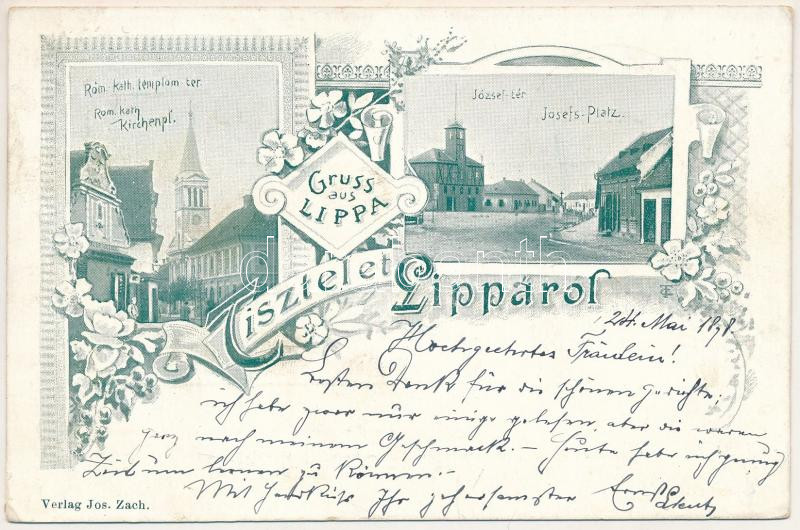 Röm. kath. templom-tér
Röm. kath.
Kirchenpl.
József-tér
Josefs-Platz.
GRUSS
aus
LIPPA
Tisztelet Lippáról
24. Mai 1898.
Hochgeehrtes Fräulein!
Besten Dank für die schönen Gedichte;
ich habe zwar nur einige gelesen, aber die waren
ganz nach meinem Geschmack. – Heute habe ich genug
Zeit um lernen zu können. –
Mit Handkuß Ihr gehorsamster Ernst
Verlag Jos. Zach.